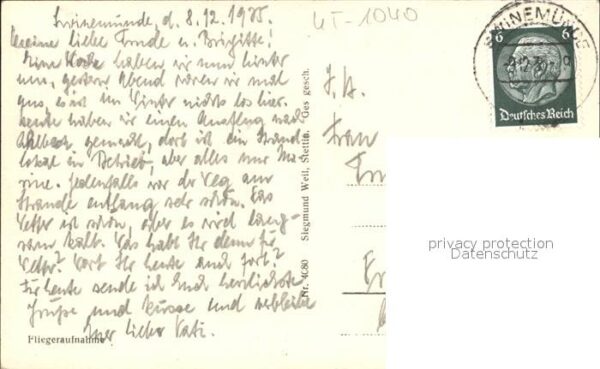 Swinemünde, d. 8.12.1935.
Meine liebe Trude u. Brigitte!
Eine Woche haben wir nun hinter
uns, gestern Abend wären wir mal
aus, es ist im Winter nichts los hier.
Heute haben wir einen Ausflug nach
Ahlbeck gemacht, dort ist ein Strand
lokal in Betrieb, aber alles nur Ma
rine. Jedenfalls war der Weg am
Strande entlang sehr schön. Das
Wetter ist schön, aber es wird lang-
sam kalt. Was habt Ihr denn für
Wetter? Wart Ihr heute auch fort?
Für heute sende ich Euch herzlichste
Grüsse und Küsse und verbleibe
Euer lieber Vati.
Fliegeraufnahme
Nr. 4680 Siegmund Weil, Stettin. Ges gesch.
UT-1040
SWINEMÜNDE
6 6
Deutsches Reich
Frau
privacy protection
Datenschutz